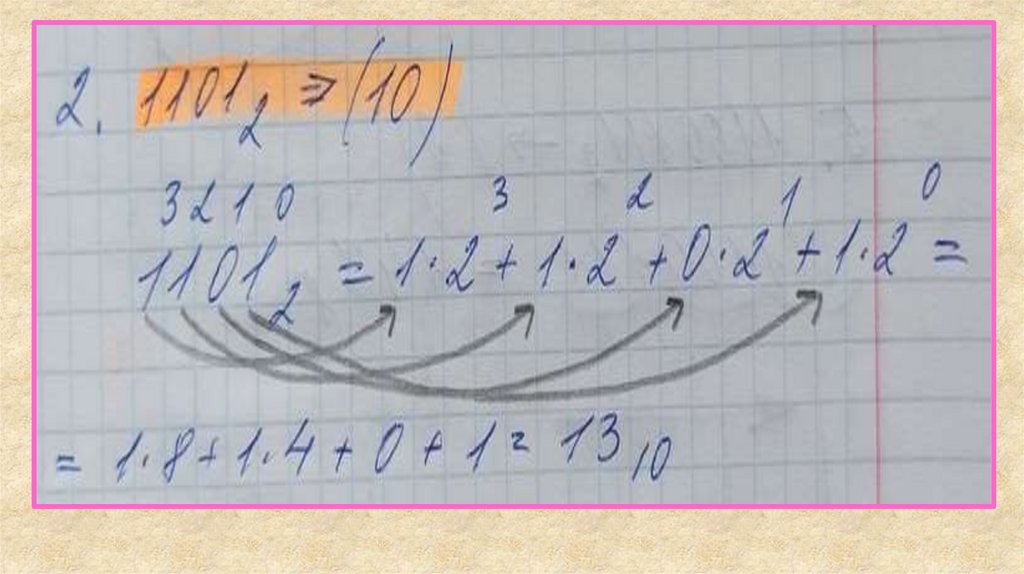 2. 1101₂ ⇒ (10)
3 2 1 0
1101₂ = 1·2³ + 1·2² + 0·2¹ + 1·2⁰ =
= 1·8 + 1·4 + 0 + 1 = 13₁₀